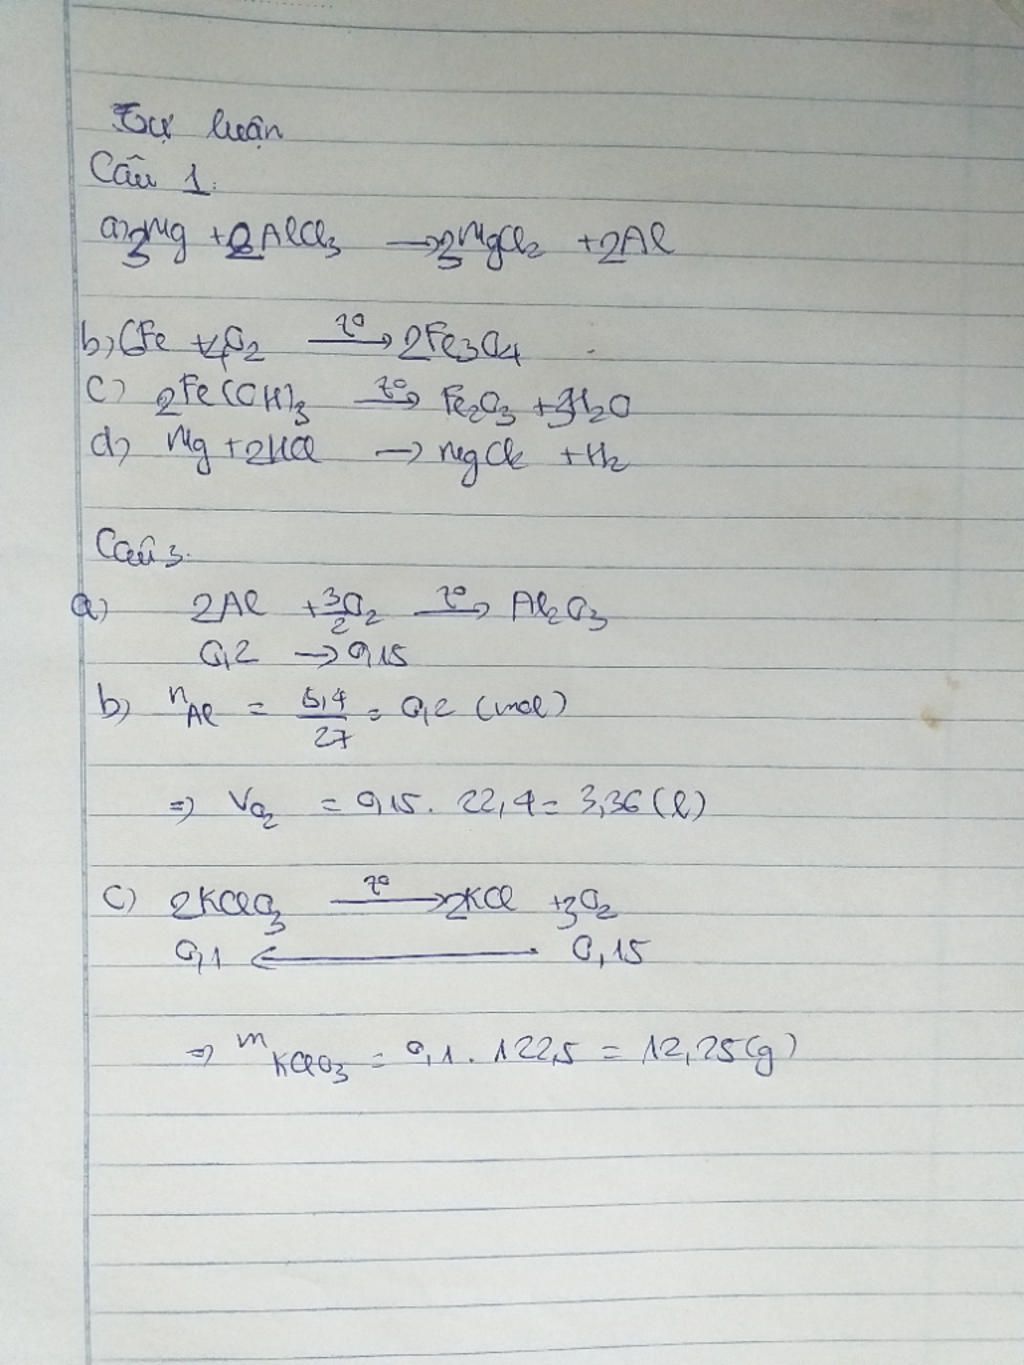 Tự luận
Câu 1:
a) 3Mg + 2AlCl3 → 3MgCl2 + 2Al
b) 6Fe + 4O2 t° → 2Fe3O4
c) 2Fe(OH)3 t° → Fe2O3 + 3H2O
d) Mg + 2HCl → MgCl2 + H2
Câu 3.
a) 2Al + 3/2 O2 t° → Al2O3
0,2 → 0,15
b) nAl = 5,4/27 = 0,2 (mol)
⇒ VO2 = 0,15 . 22,4 = 3,36 (l)
c) 2KClO3 t° → 2KCl + 3O2
0,1 ← 0,15
⇒ mKClO3 = 0,1 . 122,5 = 12,25 (g)